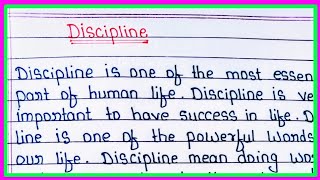 Discipline
Discipline is one of the most essen
part of human life. Discipline is ve
important to have success in life. D
line is one of the powerful words
our life. Discipline mean doing wor